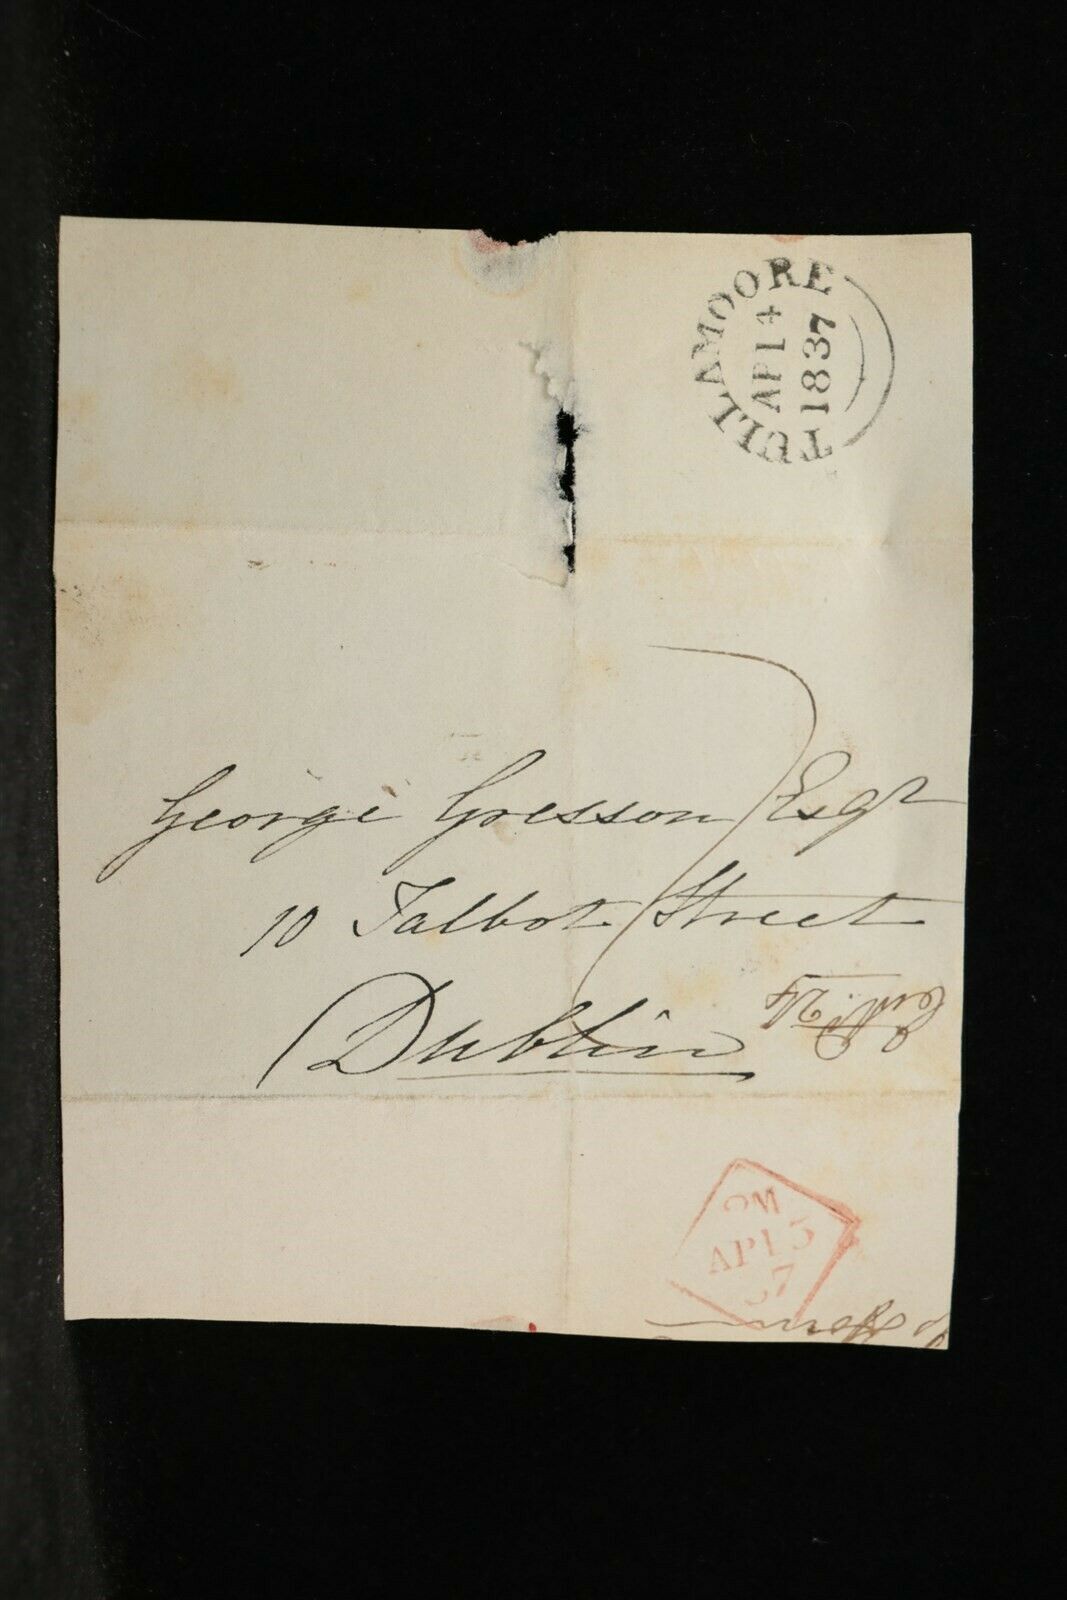 TULLAMOORE
AP 14
1837
7
George Gresson Esqr
10 Talbot Street
Dublin
2M
AP 15
37